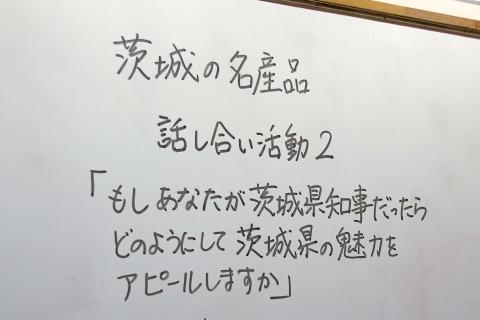 茨城の名産品
話し合い活動2
「もしあなたが茨城県知事だったら
どのようにして茨城県の魅力を
アピールしますか」